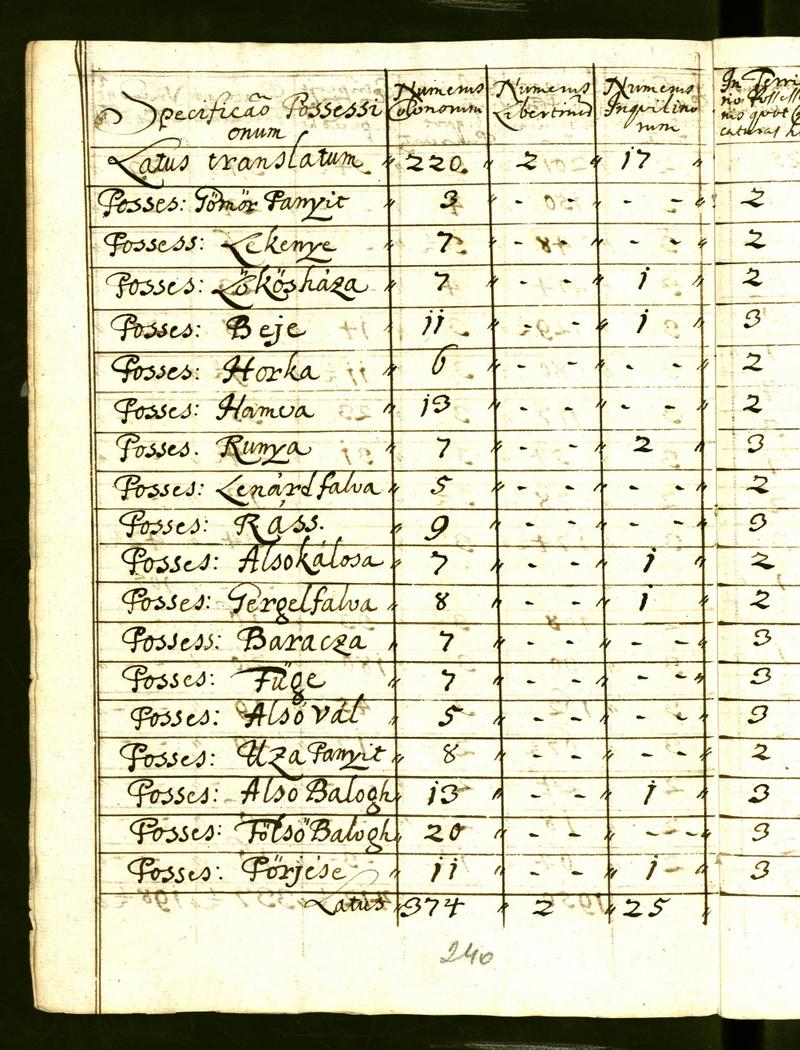 Specificaõ Possessi
onum
Numerus
Colonorum
Numerus
Libertinũ
Numerus
Inquilino
rum
In Terri
rio Possess
Latus translatum " 220. " 2 " 17 "
Posses: Gömör Panyit " 3 " - - " - - " 2
Possess: Lekenye " 7 " - - " - - " 2
Posses: Lökösháza " 7 " - - " 1 " 2
Posses: Beje " 11 " - - " 1 " 3
Posses: Horka " 6 " - - " - - " 2
Posses: Hamva " 13 " - - " - - " 2
Posses. Runya " 7 " - - " 2 " 3
Posses: Lenárdfalva " 5 " - - " - - " 2
Posses: Ráss. " 9 " - - " - - " 3
Posses: Alsokálosa " 7 " - - " 1 " 2
Posses: Gergelfalva " 8 " - - " 1 " 2
Possess: Baracza " 7 " - - " - - " 3
Posses: Füge " 7 " - - " - - " 3
Posses: Alsó Vál " 5 " - - " - - " 3
Posses: Uza Panyit " 8 " - - " - - " 2
Posses: Alsó Balogh " 13 " - - " 1 " 3
Posses: Fölsö Balogh " 20 " - - " - - - " 3
Posses: Pörjése " 11 " - - " 1 - " 3
Latus " 374 " 2 " 25 "
240